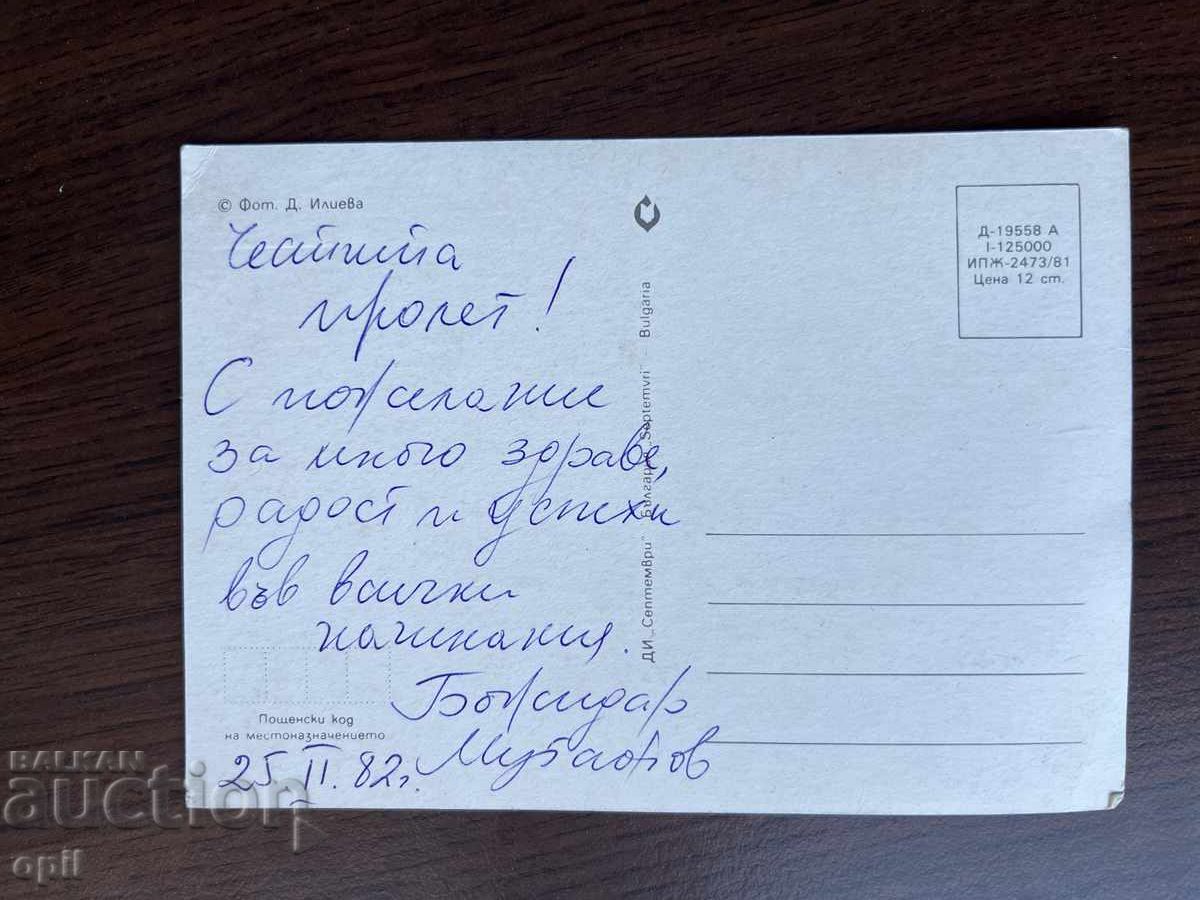 © Фот. Д. Илиева
Честита
пролет!
С пожелание
за много здраве,
радост и успехи
във всички
начинания.
Божидар
Мутафов
25 II. 82г.
Пощенски код
на местоназначението
ДИ „Септември" България „Septemvri" – Bulgaria
Д-19558 А
I-125000
ИПЖ-2473/81
Цена 12 ст.
BALKAN
auction
opil